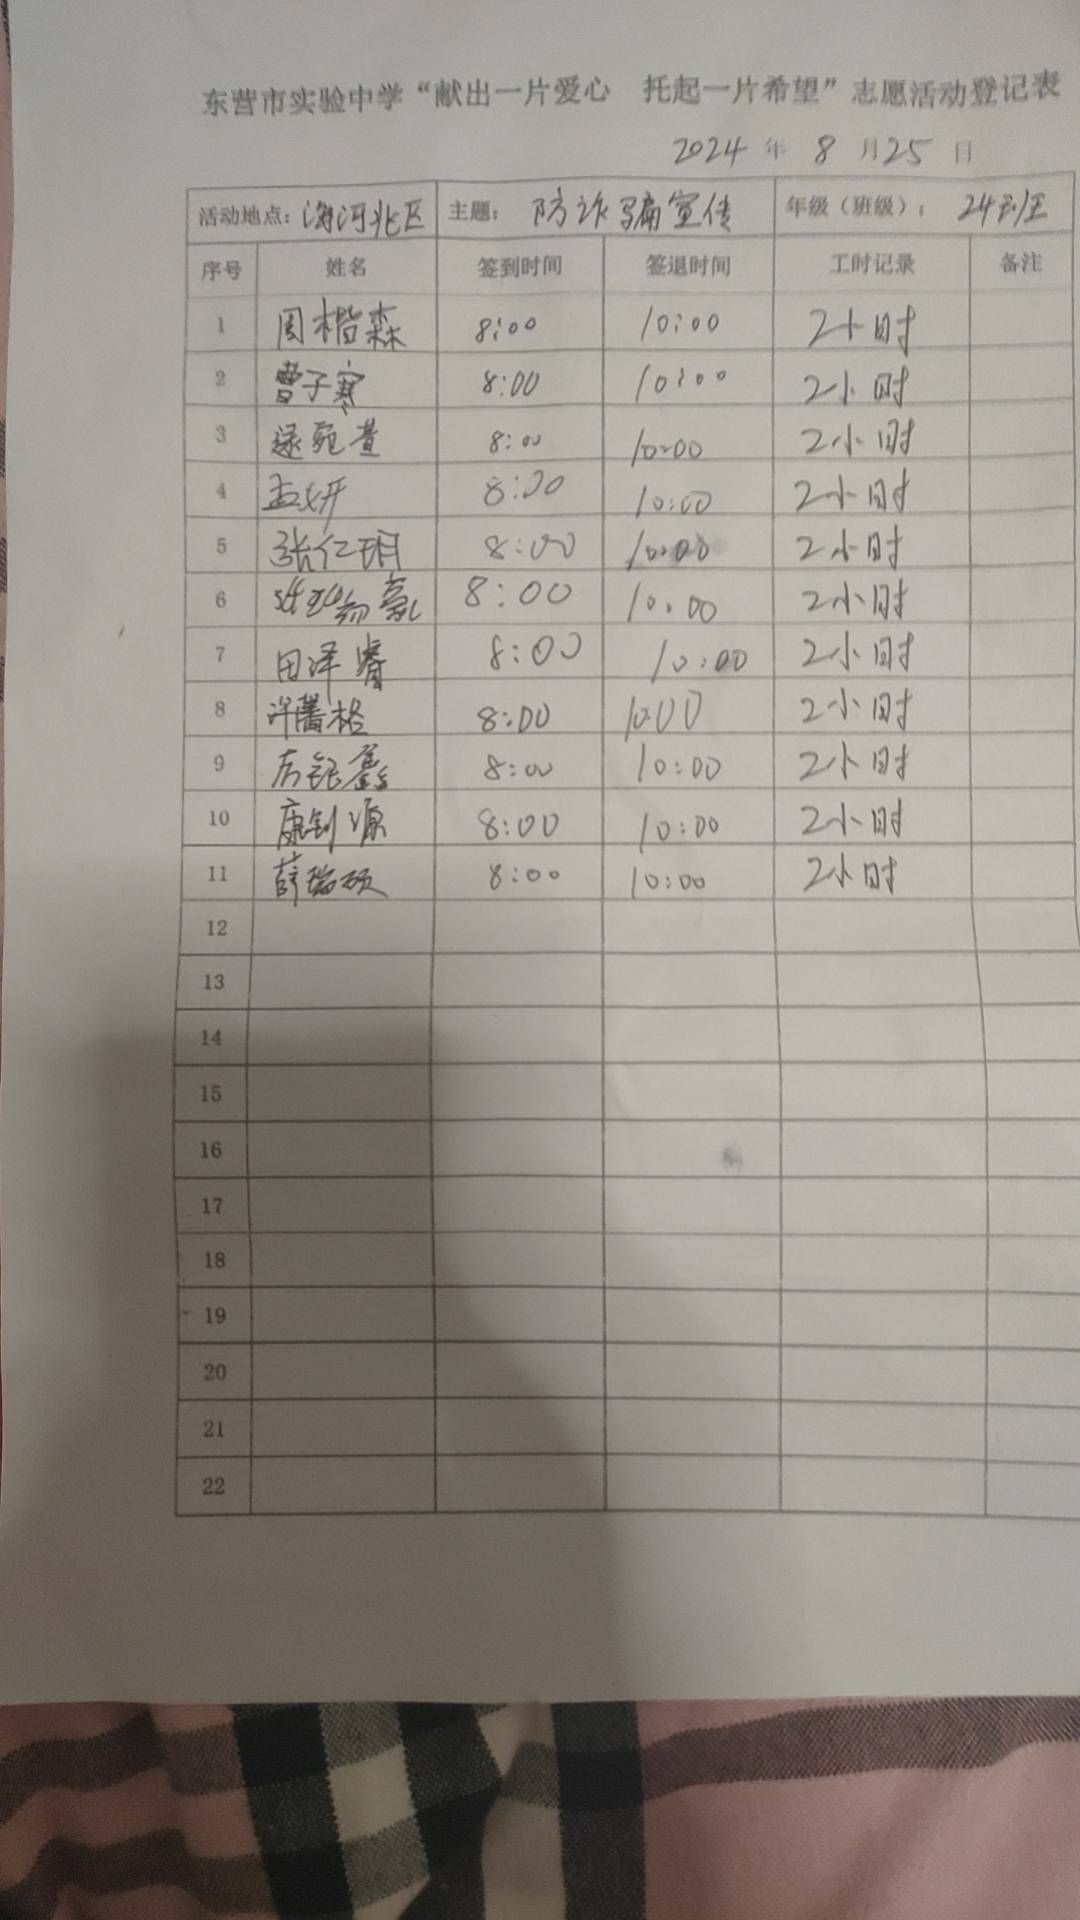 东营市实验中学“献出一片爱心 托起一片希望”志愿活动登记表
2024 年 8 月 25 日
活动地点：海河北区 主题：防诈骗宣传 年级（班级）：24
序号 姓名 签到时间 签退时间 工时记录 备注
1 周楷森 8:00 10:00 2小时
2 曹子寒 8:00 10:00 2小时
3 逯宛萱 8:00 10:00 2小时
4 孟妍 8:00 10:00 2小时
5 张仁玥 8:00 10:00 2小时
6 8:00 10:00 2小时
7 田泽睿 8:00 10:00 2小时
8 8:00 10:00 2小时
9 8:00 10:00 2小时
10 康钊源 8:00 10:00 2小时
11 薛瑞硕 8:00 10:00 2小时
12
13
14
15
16
17
18
19
20
21
22